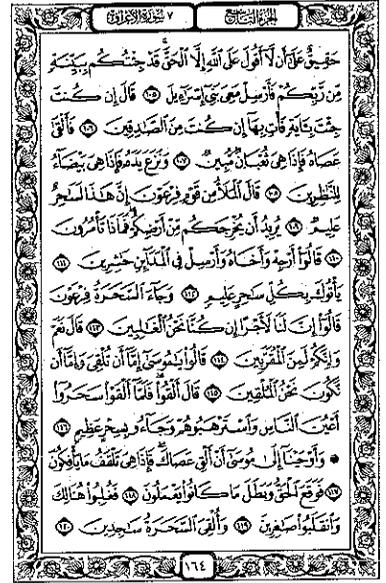 الجزء التاسع ٧ سورة الأعراف
حَقِيقٌ عَلَىٰ أَن لَّا أَقُولَ عَلَى اللَّهِ إِلَّا الْحَقَّ قَدْ جِئْتُكُم بِبَيِّنَةٍ
مِّن رَّبِّكُمْ فَأَرْسِلْ مَعِيَ بَنِي إِسْرَٰٓءِيلَ ١٠٥ قَالَ إِن كُنتَ
جِئْتَ بِـَٔايَةٍ فَأْتِ بِهَا إِن كُنتَ مِنَ الصَّٰدِقِينَ ١٠٦ فَأَلْقَىٰ
عَصَاهُ فَإِذَا هِيَ ثُعْبَانٌ مُّبِينٌ ١٠٧ وَنَزَعَ يَدَهُۥ فَإِذَا هِيَ بَيْضَآءُ
لِلنَّٰظِرِينَ ١٠٨ قَالَ الْمَلَأُ مِن قَوْمِ فِرْعَوْنَ إِنَّ هَٰذَا لَسَٰحِرٌ
عَلِيمٌ ١٠٩ يُرِيدُ أَن يُخْرِجَكُم مِّنْ أَرْضِكُمْ فَمَاذَا تَأْمُرُونَ
١١٠ قَالُوٓا۟ أَرْجِهْ وَأَخَاهُ وَأَرْسِلْ فِي الْمَدَآئِنِ حَٰشِرِينَ ١١١
يَأْتُوكَ بِكُلِّ سَٰحِرٍ عَلِيمٍ ١١٢ وَجَآءَ السَّحَرَةُ فِرْعَوْنَ
قَالُوٓا۟ إِنَّ لَنَا لَأَجْرًا إِن كُنَّا نَحْنُ الْغَٰلِبِينَ ١١٣ قَالَ نَعَمْ
وَإِنَّكُمْ لَمِنَ الْمُقَرَّبِينَ ١١٤ قَالُوا۟ يَٰمُوسَىٰٓ إِمَّآ أَن تُلْقِيَ وَإِمَّآ أَن
نَّكُونَ نَحْنُ الْمُلْقِينَ ١١٥ قَالَ أَلْقُوا۟ فَلَمَّآ أَلْقَوْا۟ سَحَرُوٓا۟
أَعْيُنَ النَّاسِ وَاسْتَرْهَبُوهُمْ وَجَآءُو بِسِحْرٍ عَظِيمٍ ١١٦
۞ وَأَوْحَيْنَآ إِلَىٰ مُوسَىٰٓ أَنْ أَلْقِ عَصَاكَ فَإِذَا هِيَ تَلْقَفُ مَا يَأْفِكُونَ
١١٧ فَوَقَعَ الْحَقُّ وَبَطَلَ مَا كَانُوا۟ يَعْمَلُونَ ١١٨ فَغُلِبُوا۟ هُنَالِكَ
وَانقَلَبُوا۟ صَٰغِرِينَ ١١٩ وَأُلْقِيَ السَّحَرَةُ سَٰجِدِينَ ١٢٠
١٦٤